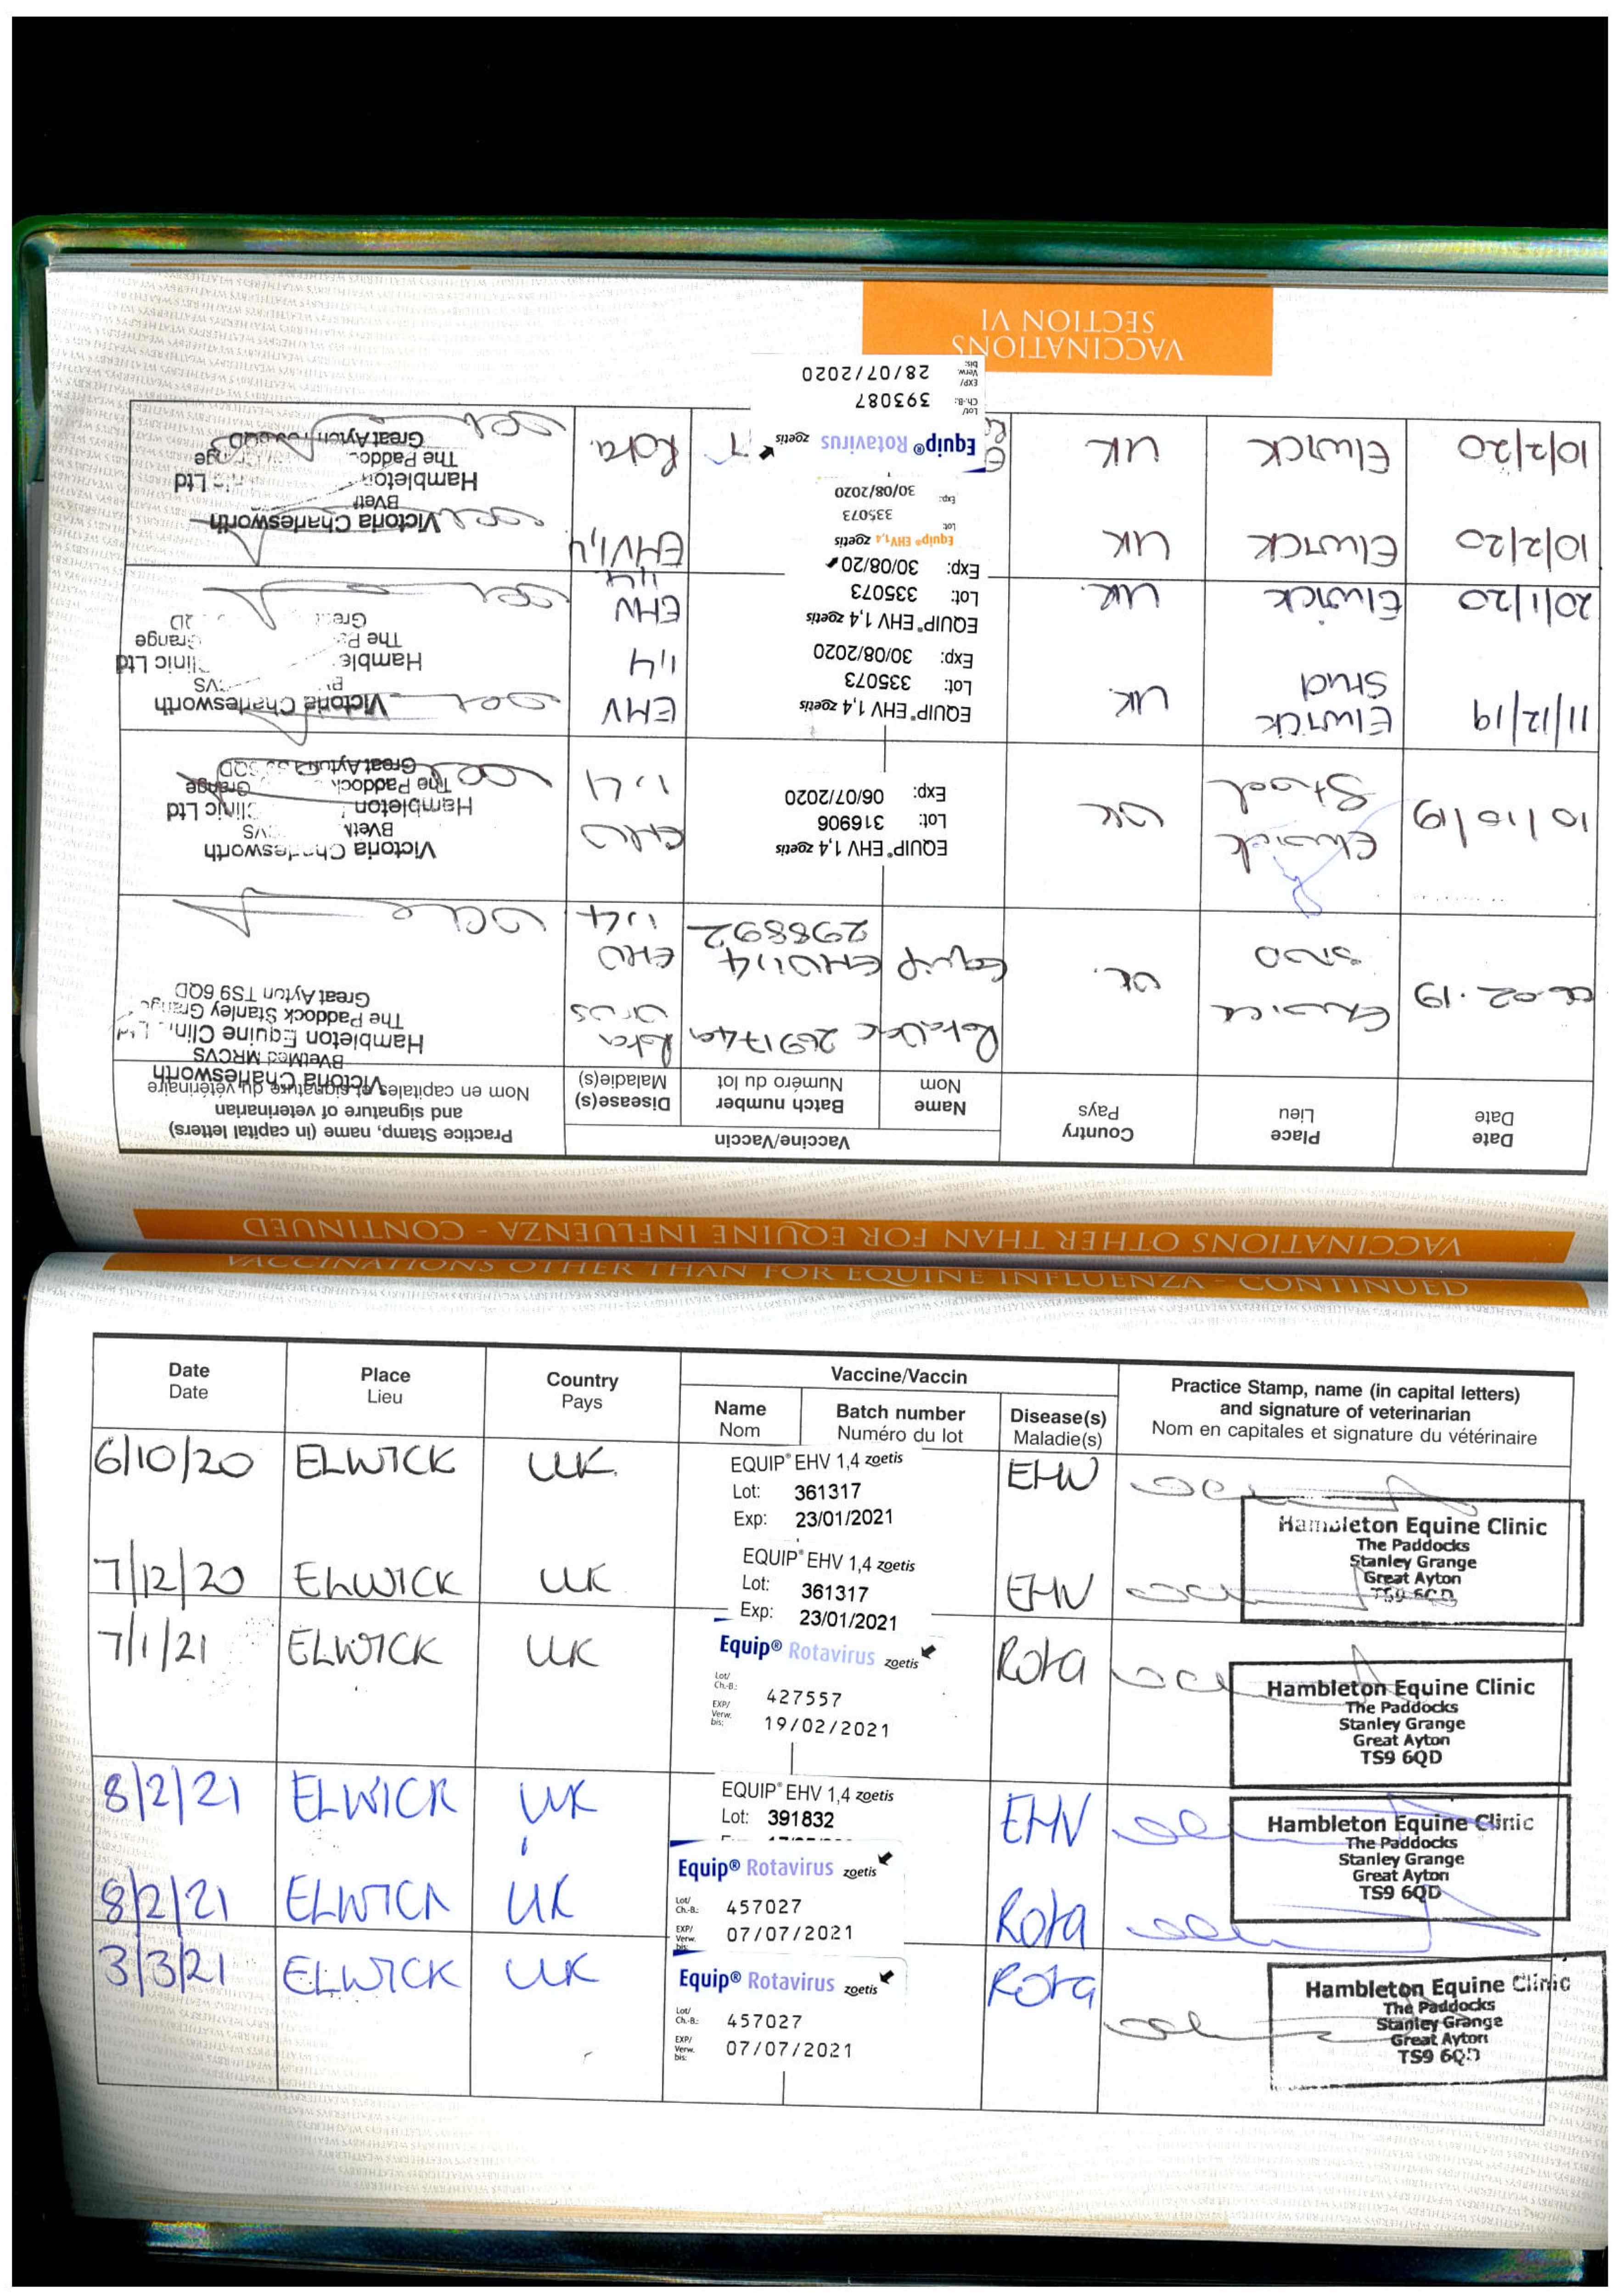 VACCINATIONS OTHER THAN FOR EQUINE INFLUENZA - CONTINUED
Date
Date
Place
Lieu
Country
Pays
Vaccine/Vaccin
Name
Nom
Batch number
Numéro du lot
Disease(s)
Maladie(s)
Practice Stamp, name (in capital letters)
and signature of veterinarian
Nom en capitales et signature du vétérinaire
Victoria Charlesworth
BVetMed MRCVS
Hambleton Equine Clinic Ltd
The Paddock Stanley Grange
Great Ayton TS9 6QD
02.19
Elwick
Stud
UK
Rotavac 269174a
Rota
Virus
Equip EHV1,4
298892
EHV
1,4
10/10/19
Elwick
Stud
UK
EQUIP® EHV 1,4 zoetis
Lot: 316906
Exp: 06/07/2020
EHV
1,4
Victoria Charlesworth
Hambleton Clinic Ltd
The Paddock Grange
Great Ayton 6QD
11/12/19
Elwick
Stud
UK
EQUIP® EHV 1,4 zoetis
Lot: 335073
Exp: 30/08/2020
EHV
1,4
Victoria Charlesworth
20/1/20
Elwick
UK
EQUIP® EHV 1,4 zoetis
Lot: 335073
Exp: 30/08/20
EHV
1,4
10/2/20
Elwick
UK
Equip® EHV 1,4 zoetis
Lot 335073
Exp: 30/08/2020
EHV1,4
Victoria Charlesworth
Hambleton Ltd
Great Ayton
10/2/20
Elwick
UK
Equip® Rotavirus zoetis
Lot/ Ch.-B.: 393087
EXP/ Verw. bis: 28/07/2020
Rota
VACCINATIONS
SECTION VI
VACCINATIONS OTHER THAN FOR EQUINE INFLUENZA - CONTINUED
Date
Date
Place
Lieu
Country
Pays
Vaccine/Vaccin
Name
Nom
Batch number
Numéro du lot
Disease(s)
Maladie(s)
Practice Stamp, name (in capital letters)
and signature of veterinarian
Nom en capitales et signature du vétérinaire
6/10/20
ELWICK
UK
EQUIP® EHV 1,4 zoetis
Lot: 361317
Exp: 23/01/2021
EHV
Hambleton Equine Clinic
The Paddocks
Stanley Grange
Great Ayton
TS9 6QD
7/12/20
ELWICK
UK
EQUIP® EHV 1,4 zoetis
Lot: 361317
Exp: 23/01/2021
EHV
7/1/21
ELWICK
UK
Equip® Rotavirus zoetis
Lot/ Ch.-B.: 427557
EXP/ Verw. bis: 19/02/2021
Rota
Hambleton Equine Clinic
The Paddocks
Stanley Grange
Great Ayton
TS9 6QD
8/2/21
ELWICK
UK
EQUIP® EHV 1,4 zoetis
Lot: 391832
EHV
Hambleton Equine Clinic
The Paddocks
Stanley Grange
Great Ayton
TS9 6QD
8/2/21
ELWICK
UK
Equip® Rotavirus zoetis
Lot/ Ch.-B.: 457027
EXP/ Verw. bis: 07/07/2021
Rota
3/3/21
ELWICK
UK
Equip® Rotavirus zoetis
Lot/ Ch.-B.: 457027
EXP/ Verw. bis: 07/07/2021
Rota
Hambleton Equine Clinic
The Paddocks
Stanley Grange
Great Ayton
TS9 6QD